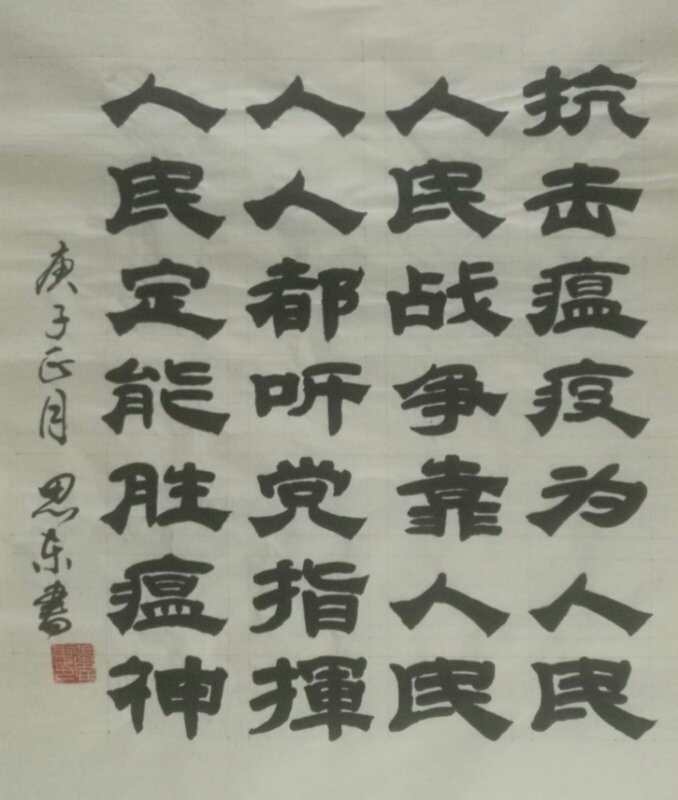 抗击瘟疫为人民
人民战争靠人民
人人都听党指揮
人民定能胜瘟神
庚子正月 思东书